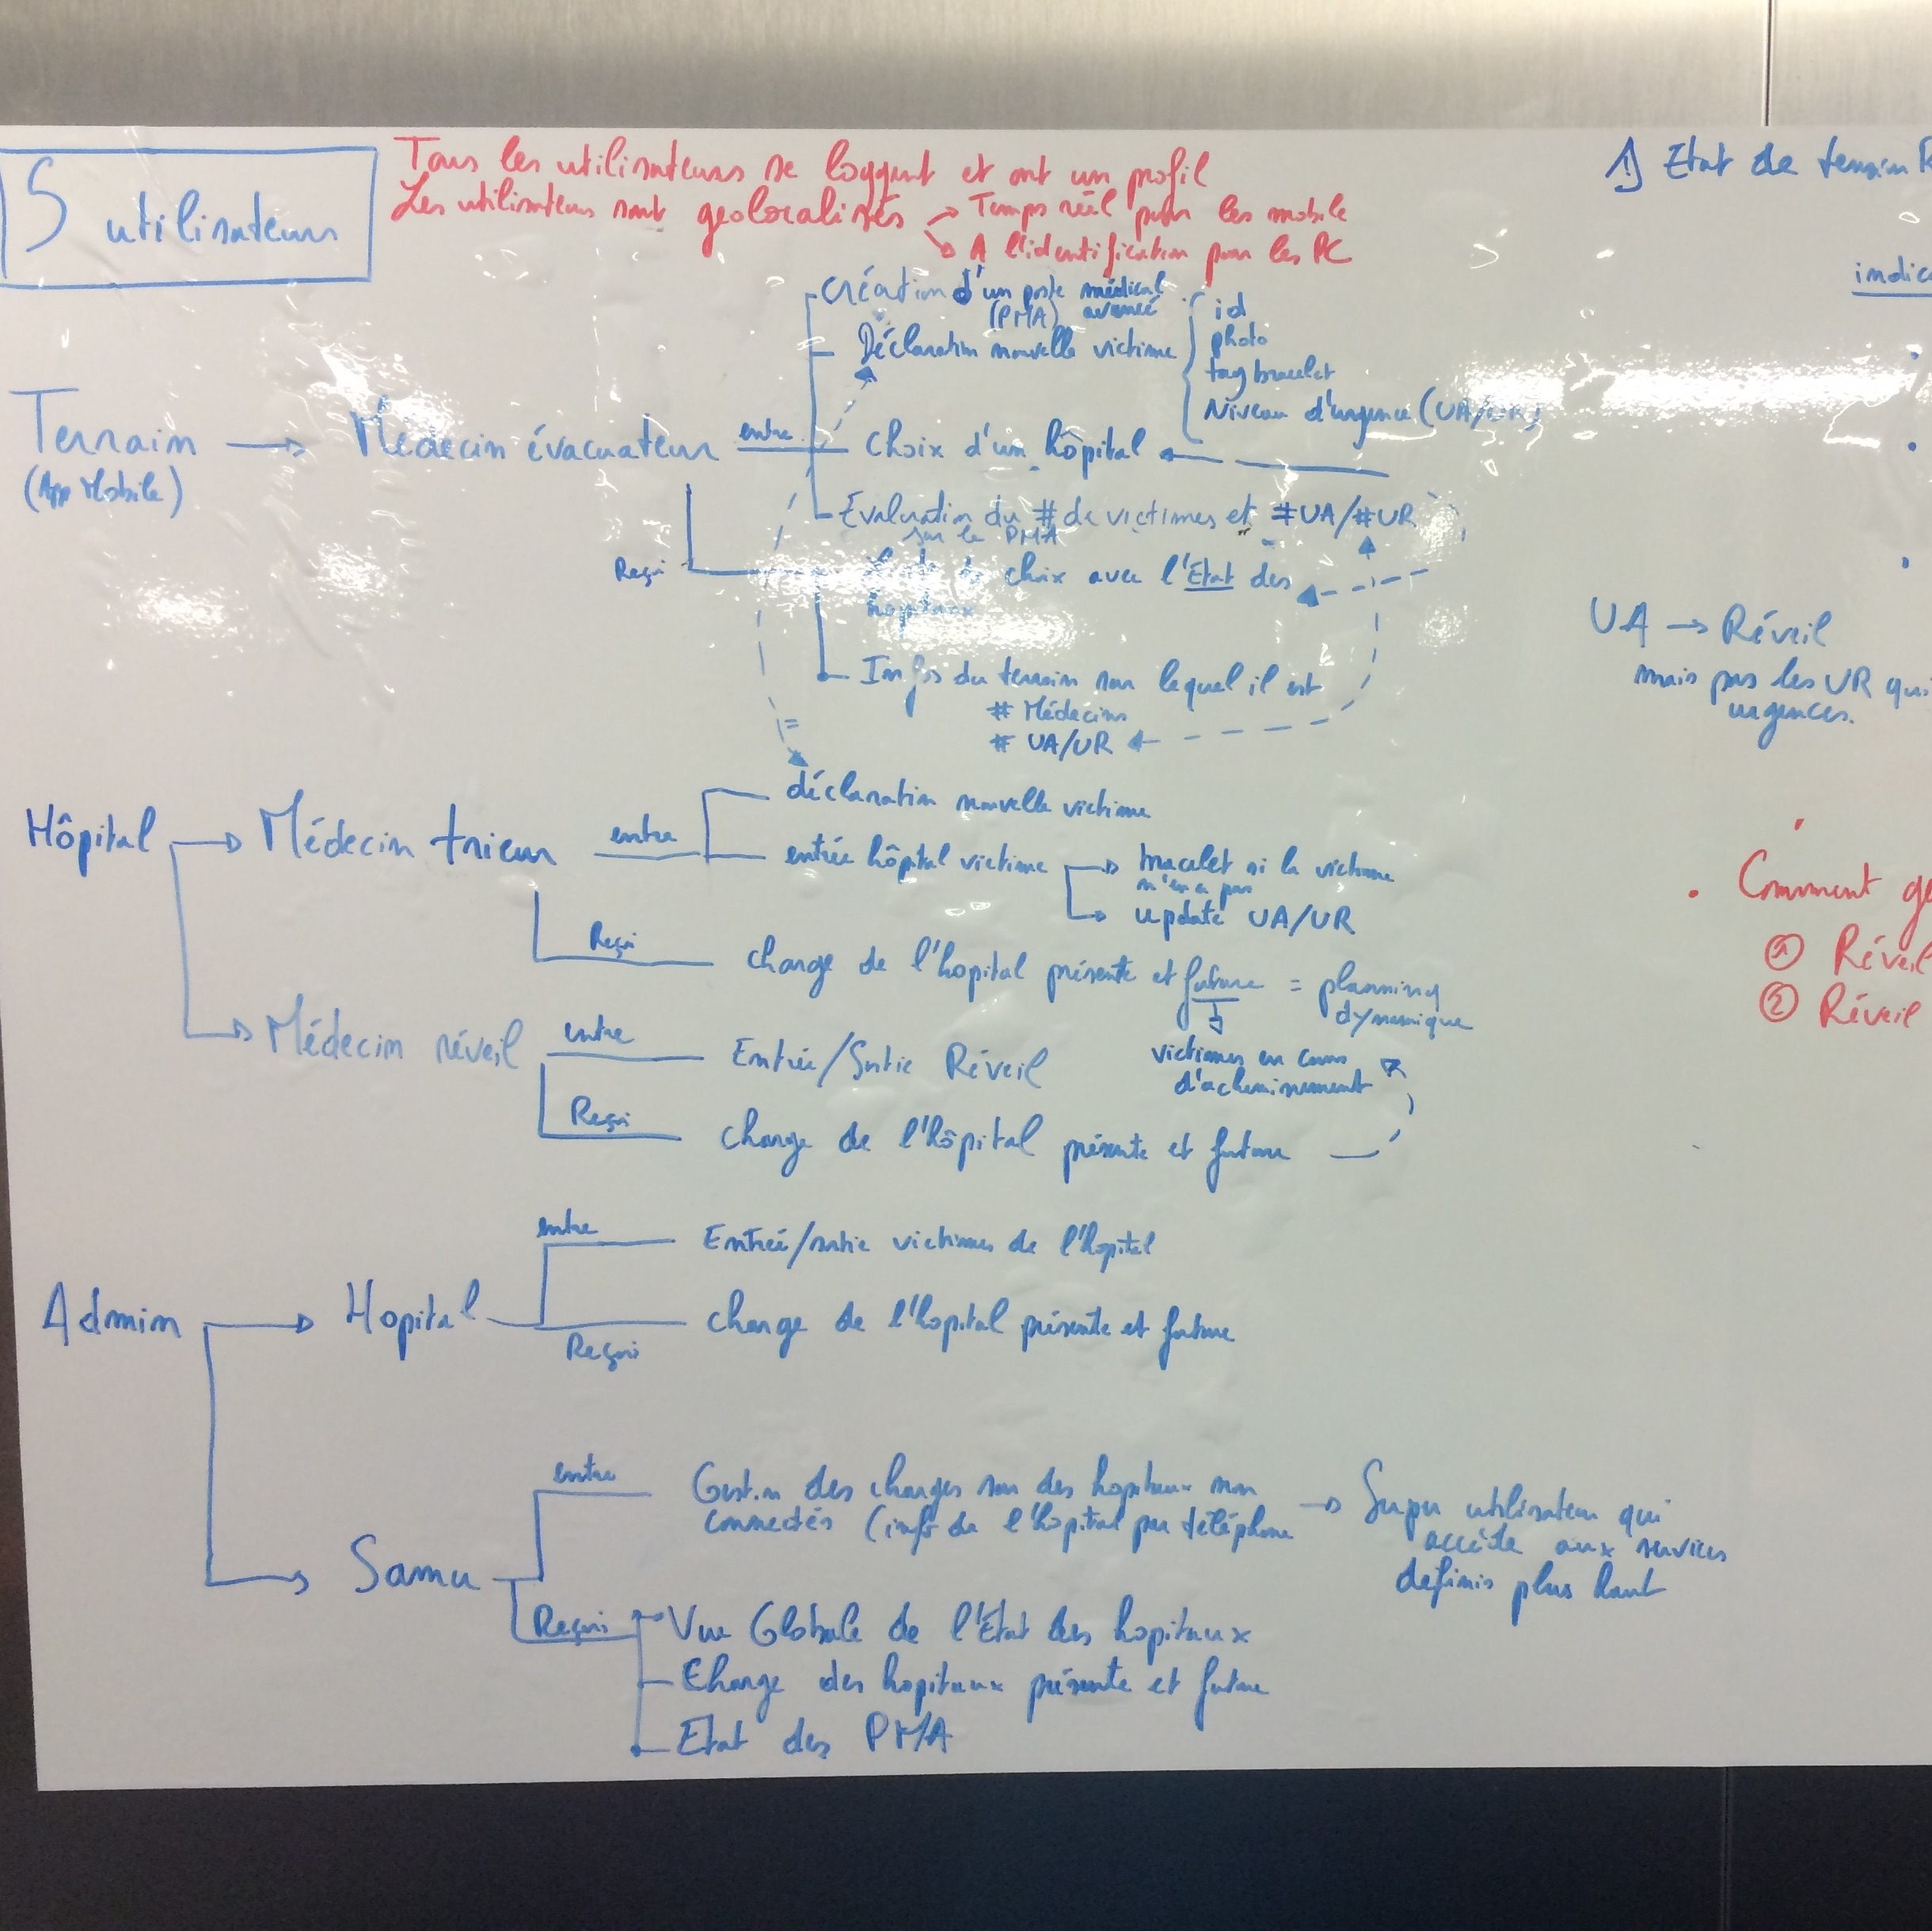 5 utilisateurs
Tous les utilisateurs se loggent et ont un profil
Les utilisateurs sont geolocalisés
Temps réel pour les mobile
A l'identification pour les PC
Terrain
(App Mobile)
Médecin évacuateur
entre
création d'un poste médical
(PMA) avancé
Déclaration nouvelle victime
id
photo
tag bracelet
Niveau d'urgence (UA/UR)
choix d'un hôpital
Evaluation du # de victimes et #UA/#UR
sur le PMA
Reçoi
choix avec l'Etat des
hopitaux
Infos du terrain sur lequel il est
# Médecins
# UA/UR
=
Hôpital
Médecin trieur
entre
déclaration nouvelle victime
entrée hôpital victime
bracelet si la victime
n'en a pas
update UA/UR
Reçoi
charge de l'hopital présente et future = planning
dynamique
victimes en cours
d'acheminement
Médecin réveil
entre
Entrée/Sortie Réveil
Reçoi
charge de l'hôpital présente et future
Admin
Hopital
entre
Entrée/sortie victimes de l'hopital
Reçoi
charge de l'hopital présente et future
Samu
entre
Gestion des charges sur des hopitaux non
connectés (info de l'hopital par téléphone
Super utilisateur qui
accède aux services
definis plus haut
Reçoi
Vue Globale de l'Etat des hopitaux
Charge des hopitaux présente et future
Etat des PMA
1) Etat de terrain
indic
UA → Réveil
mais pas les UR qui
urgences.
. Comment
① Réveil
② Réveil